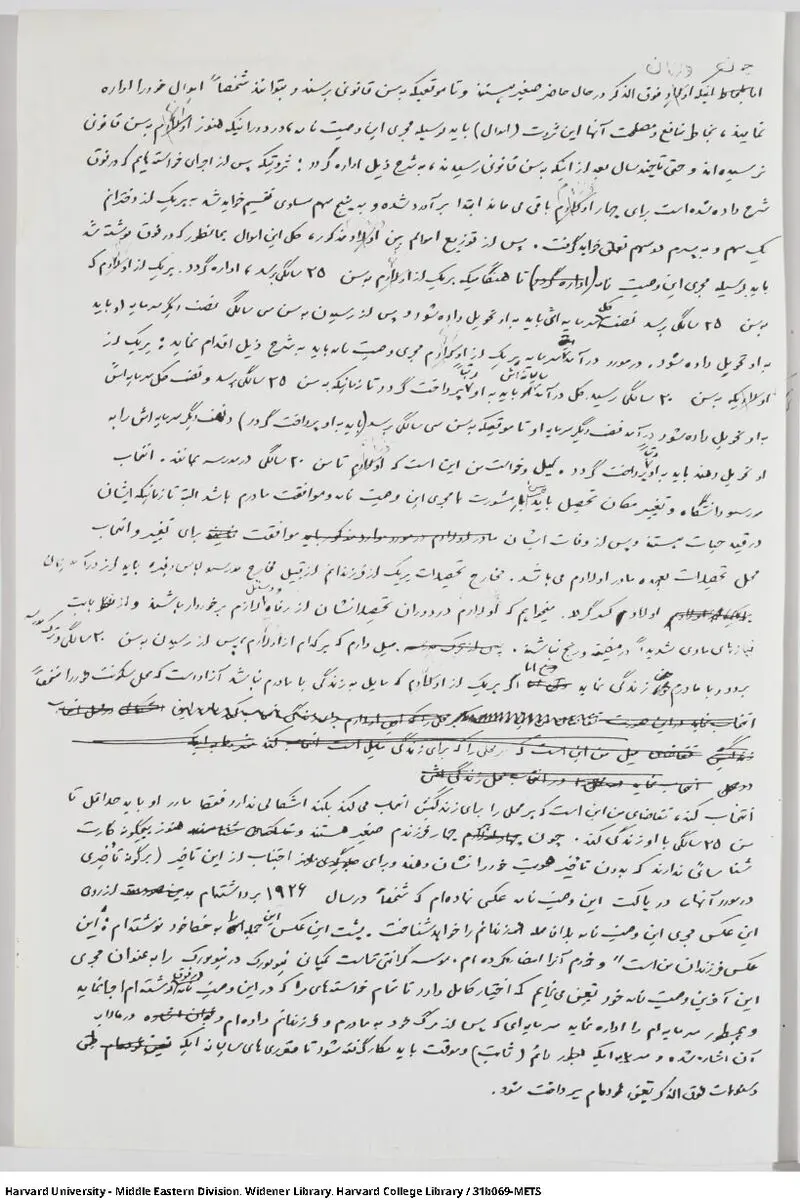 اما بلحاظ اینکه اولاد فوق الذکر در حال حاضر صغیر هستند و تا موقعیکه به سن قانونی برسند و بتوانند شخصاً اموال خود را اداره
نمایند، بخاطر منافع و مصلحت آنها این ثروت (اموال) باید بوسیله مجری این وصیت نامه، در دورانیکه هنوز اولادم به سن قانونی
نرسیده اند و حتی تا چند سال بعد از اینکه به سن قانونی رسیدند، به شرح ذیل اداره گردد: ثروتیکه پس از اجرای خواسته هایم که در فوق
شرح داده شده است برای چهار اولادم باقی می ماند ابتدا برآورد شده و به پنج سهم مساوی تقسیم خواهد شد به هر یک از دخترانم
یک سهم و به پسرم دو سهم تعلق خواهد گرفت. پس از توزیع اموالم بین اولاد مذکور، کل این اموال بهمانطور که در فوق نوشته شد
باید بوسیله مجری این وصیت نامه (اداره گردد) تا هنگامیکه هر یک از اولادم به سن ۲۵ سالگی برسد، اداره گردد. هر یک از اولادم که
به سن ۲۵ سالگی برسد نصف کل سرمایه اش باید به او تحویل داده شود و پس از رسیدن به سن سی سالگی نصف دیگر سرمایه او باید
به او تحویل داده شود. در مورد در آمد سرمایه هر یک از اولادم مجری وصیت نامه باید به شرح ذیل اقدام نماید: هر یک از
اولادیکه به سن ۲۰ سالگی رسید کل در آمد باید به او پرداخت گردد تا زمانیکه به سن ۲۵ سالگی برسد و نصف کل سرمایه اش
به او تحویل داده شود در آمد نصف دیگر سرمایه او تا موقعیکه به سن سی سالگی برسد (باید به او پرداخت گردد) و نصف دیگر سرمایه اش را به
او تحویل دهند باید به او پرداخت گردد. میل و خواست من این است که اولادم تا سن ۲۰ سالگی در مدرسه بمانند. انتخاب
مدرسه و دانشگاه و تغییر مکان تحصیل باید با مشورت با مجری این وصیت نامه و موافقت مادرم باشد البته تا زمانیکه ایشان
در قید حیات هستند و پس از وفات ایشان موافقت برای تغییر و انتخاب
محل تحصیلات بعهده مادر اولادم می باشد. مخارج تحصیلات هر یک از فرزندانم از قبیل مخارج مدرسه لباس وغیره باید از درآمد
اولادم کسر گردد. میخواهم که اولادم در دوران تحصیلشان از رفاه لازم برخوردار باشند و از بابت
نیازهای مادی شدیداً در مضیقه و رنج نباشند. میل دارم که هر کدام از اولادم، پس از رسیدن به سن ۲۰ سالگی
برود و با مادرم زندگی نماید اما اگر هر یک از اولادم که مایل به زندگی با مادرم نباشد آزاد است که محل سکونت خود را شخصاً
میل من این است که هر محلی را که برای زندگی مایل است انتخاب کند
انتخاب کند، تقاضای من این است که هر محل را برای زندگیش انتخاب می کند بکند اشکالی ندارد فقط مادر او باید حداقل تا
سن ۲۵ سالگی با او زندگی کند. چون چهار فرزندم صغیر هستند و هنوز هیچگونه کارت
شناسائی ندارند که بدون تأخیر هویت خود را نشان دهند و برای اجتناب از این تأخیر (هرگونه تأخیری
در مورد آنها، در پاکت این وصیت نامه عکسی نهاده ام که شخصاً در سال ۱۹۲۶ برداشته ام از روی
این عکس مجری این وصیت نامه بلافاصله فرزندانم را خواهد شناخت. پشت این عکس این جمله را به خط خود نوشته ام: "این
عکس فرزندان من است" و خودم آنرا امضا کرده ام. موسسه گرانتی تراست کمپانی نیویورک در نیویورک را به عنوان مجری
این آخرین وصیت نامه خود تعیین می نمایم که اختیار کامل دارد تا تمام خواسته های مرا که در این وصیت نامه نوشته ام اجرا نماید
و بهمنطور سرمایه ام را اداره نماید سرمایه ای که پس از مرگ خود به مادرم و فرزندانم داده ام و در مطالب
آن اشاره شده و سرمایه ایکه بطور دائم (ثابت) و موقت باید بکار گرفته شود تا مقرری های سالیانه ایکه طی
فوق الذکر تعیین نموده ام پرداخت شود.
Harvard University - Middle Eastern Division. Widener Library. Harvard College Library / 31b069-METS